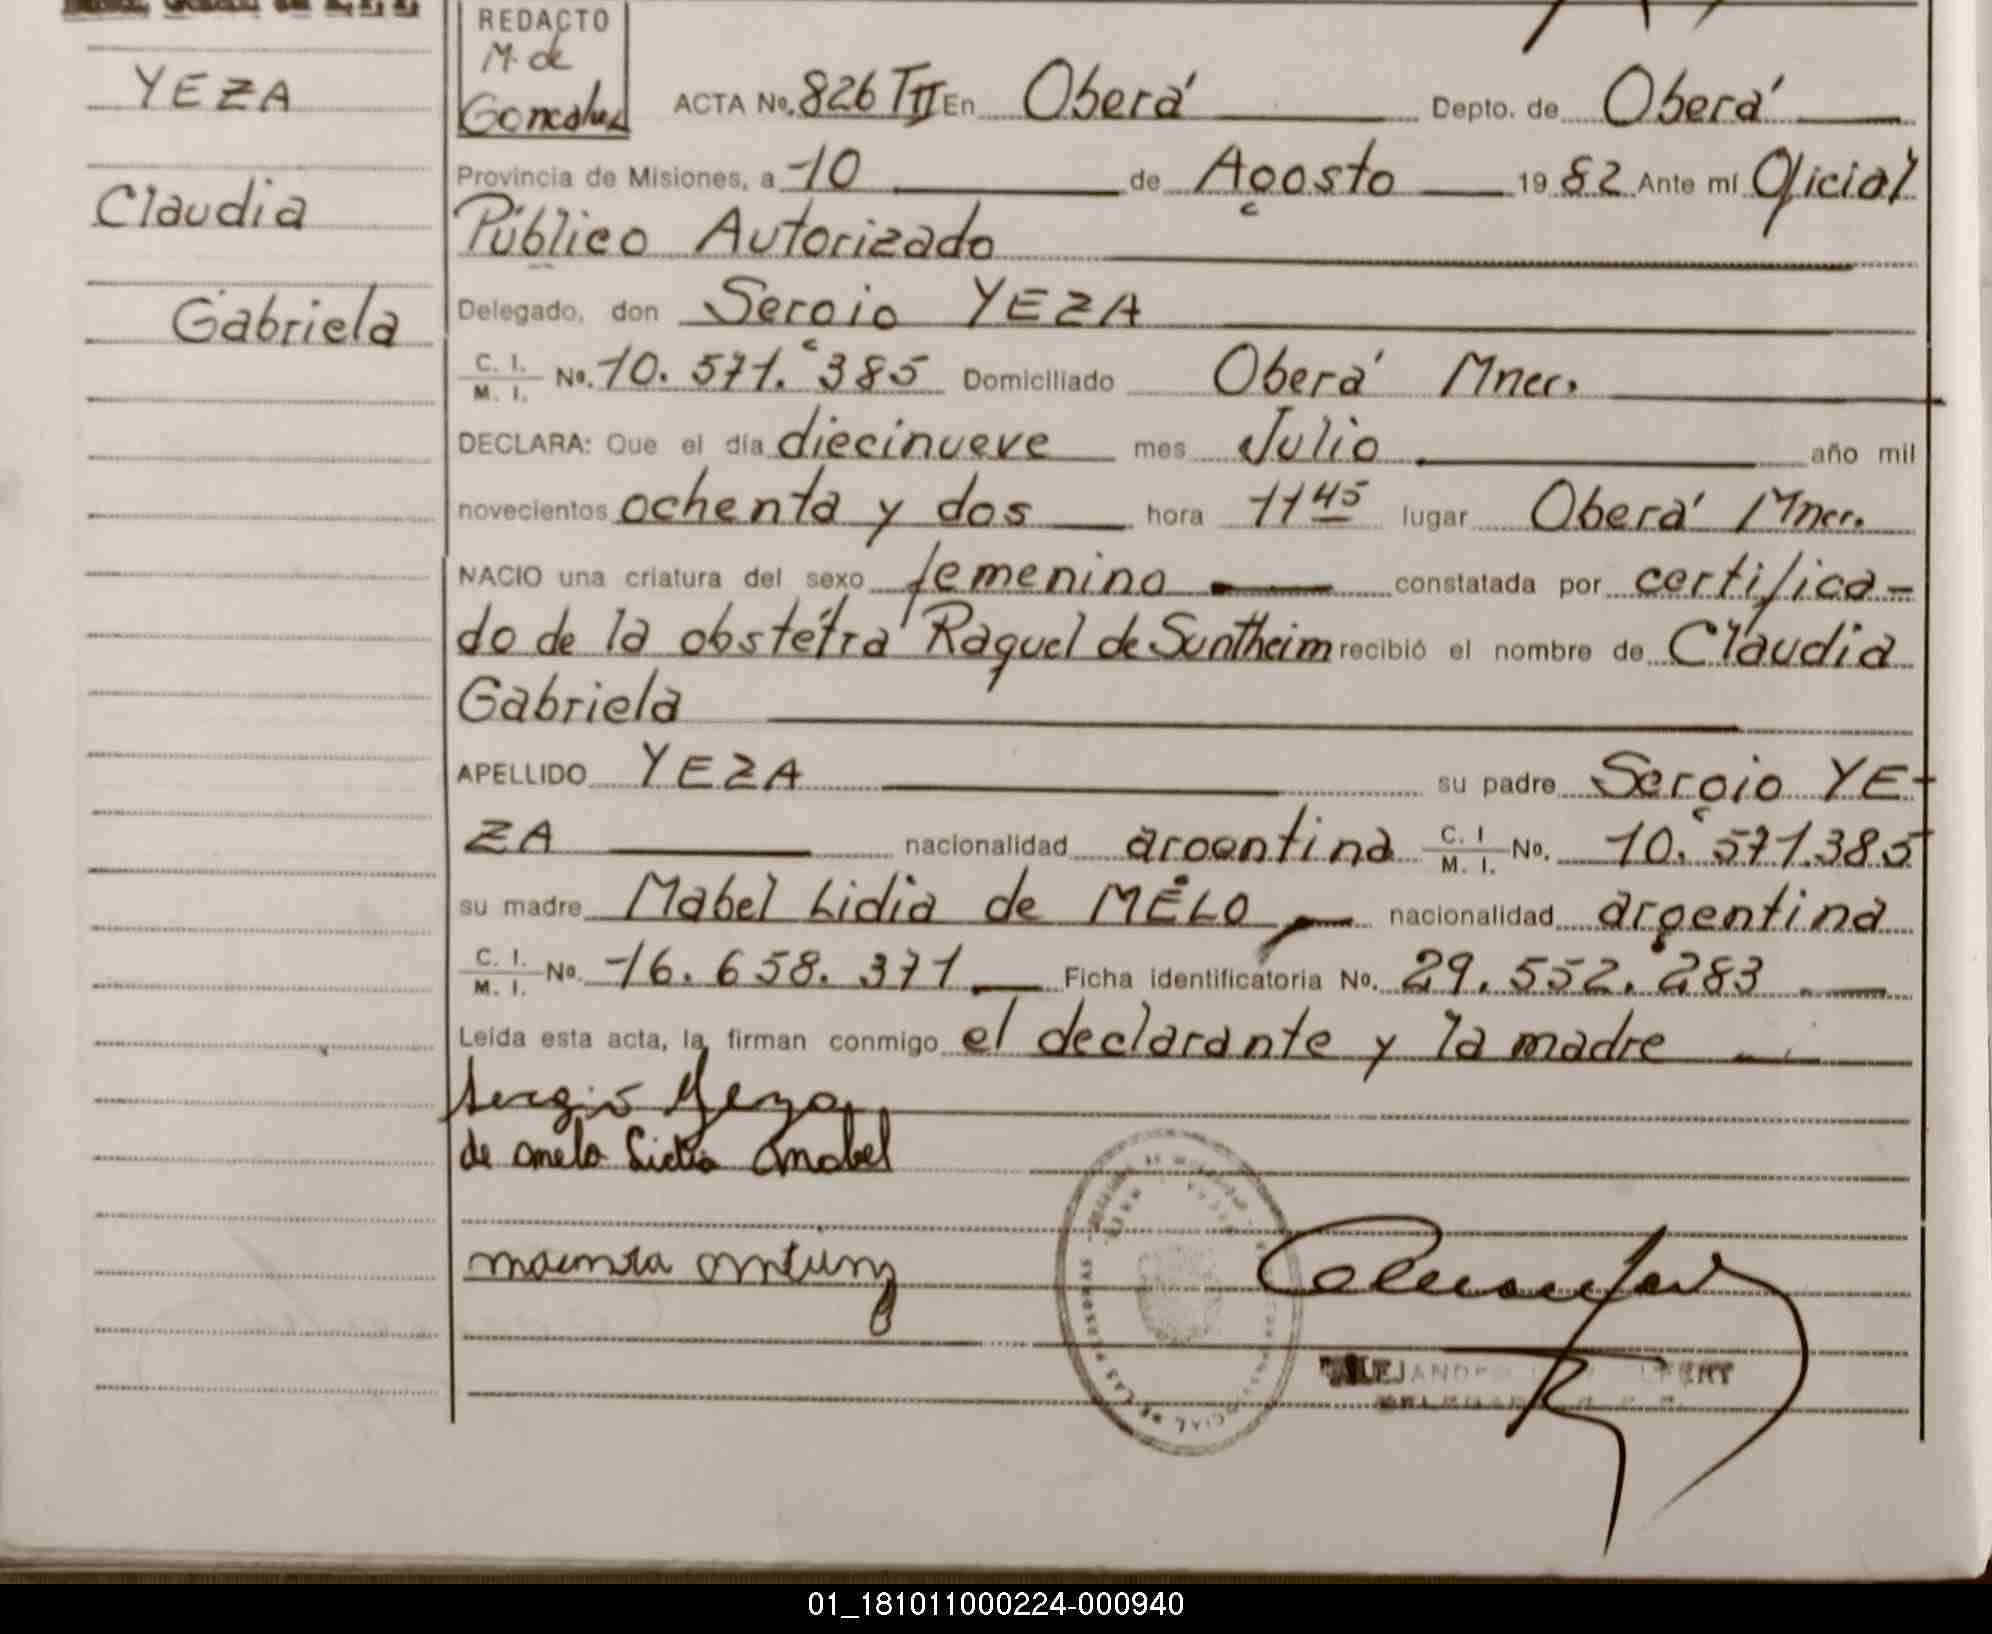 REDACTO
M. de
YEZA
ACTA No. 826 TII En Oberá Depto. de Oberá
Provincia de Misiones, a 10 de Agosto 1982 Ante mí Oficial
Claudia
Público Autorizado
Gabriela
Delegado, don Sergio YEZA
C. I.
M. I. No. 10.571.385 Domiciliado Oberá Mnes.
DECLARA: Que el día diecinueve mes Julio año mil
novecientos ochenta y dos hora 11 45 lugar Oberá Mnes.
NACIO una criatura del sexo femenino constatada por certifica-
do de la obstétra Raquel de Suntheim recibió el nombre de Claudia
Gabriela
APELLIDO YEZA su padre Sergio YE-
ZA nacionalidad argentina C. I. M. I. No. 10.571.385
su madre Mabel Lidia de MELO nacionalidad argentina
C. I.
M. I. No. 16.658.371 Ficha identificatoria No. 29.552.283
Leída esta acta, la firman conmigo el declarante y la madre
Sergio Yeza
de melo Lidia mabel
DE LAS PERSONAS
ALEJANDRO
01_181011000224-000940